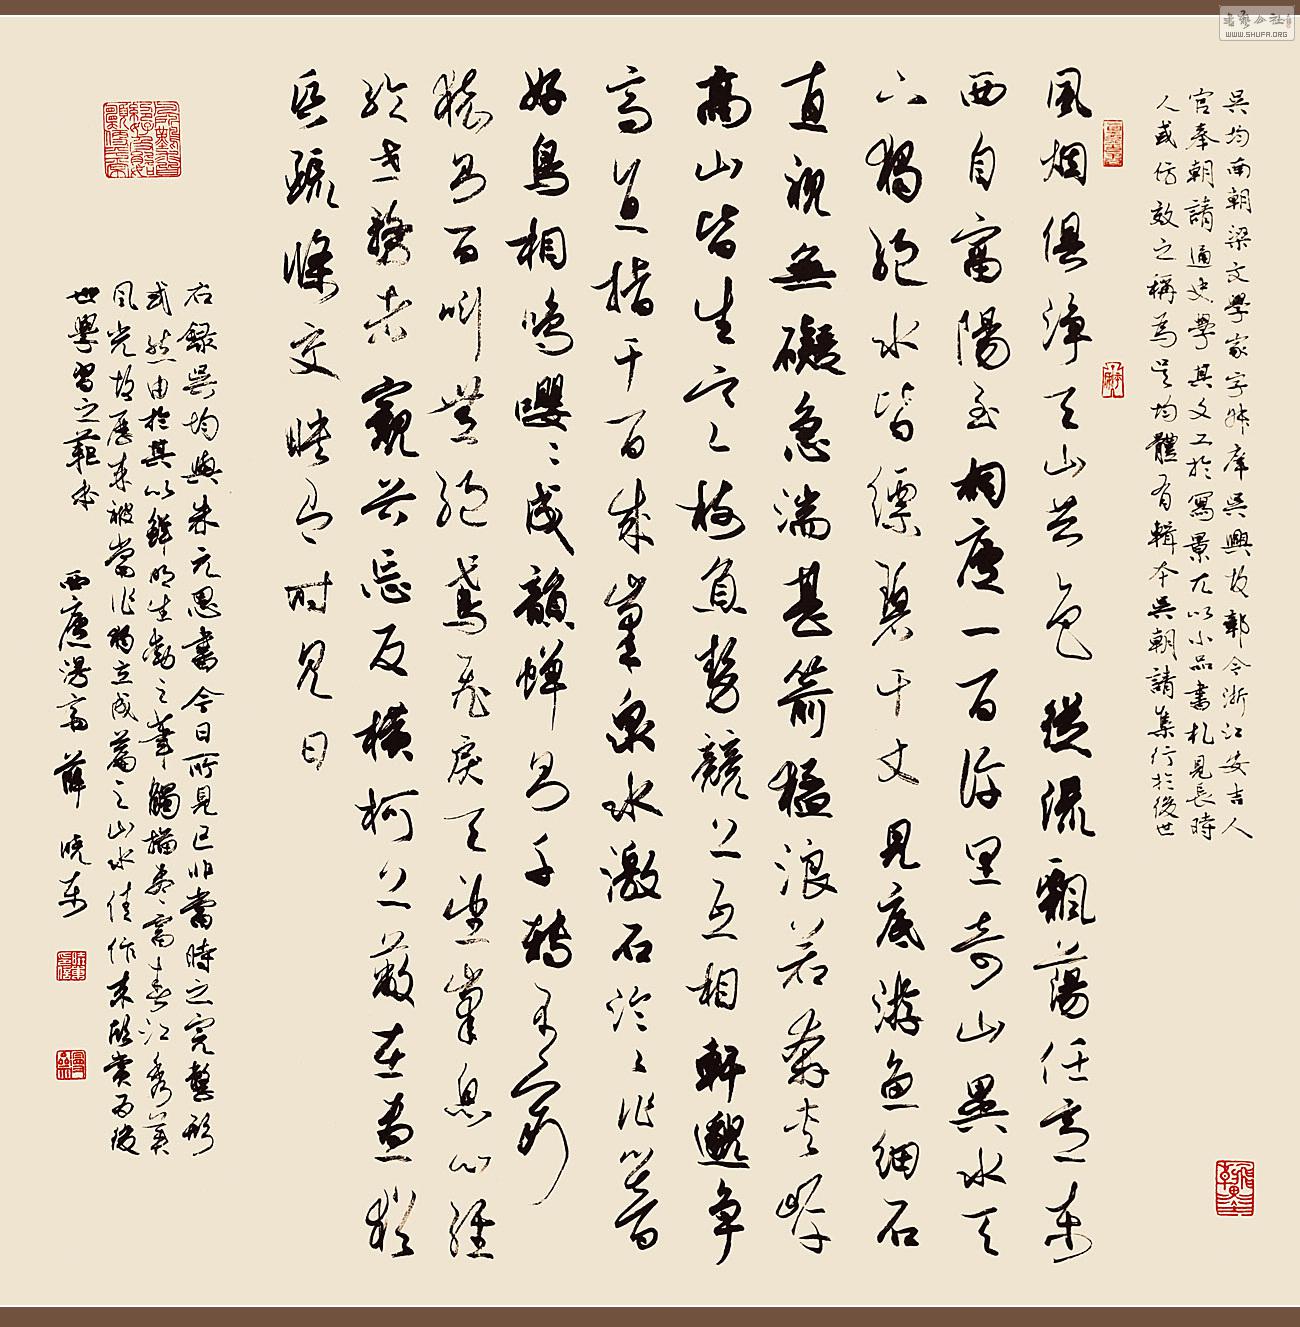 书艺公社
WWW.SHUFA.ORG
吳均南朝梁文學家字叔庠吳興故鄣今浙江安吉人
官奉朝請通史學其文工於寫景尤以小品書札見長時
人或仿效之稱為吳均體有輯本吳朝請集行於後世
風烟俱淨天山共色從流飄蕩任意東
西自富陽至桐廬一百許里奇山異水天
下獨絕水皆縹碧千丈見底游魚細石
直視無礙急湍甚箭猛浪若奔夾岸
高山皆生寒樹負勢競上互相軒邈爭
高直指千百成峯泉水激石泠〻作響
好鳥相鳴嚶〻成韻蟬則千轉不窮
猿則百叫無絕鳶飛戾天望峯息心經
綸世務者窺谷忘反橫柯上蔽在晝猶
昏疏條交映有時見日
右錄吳均與朱元思書今日所見已非當時之完整形
式然由於其以鮮明生動之筆觸描富春江秀美
風光故歷來被當作獨立成篇之山水佳作來欣賞而後
世學習之範本 西廬 薛曉東